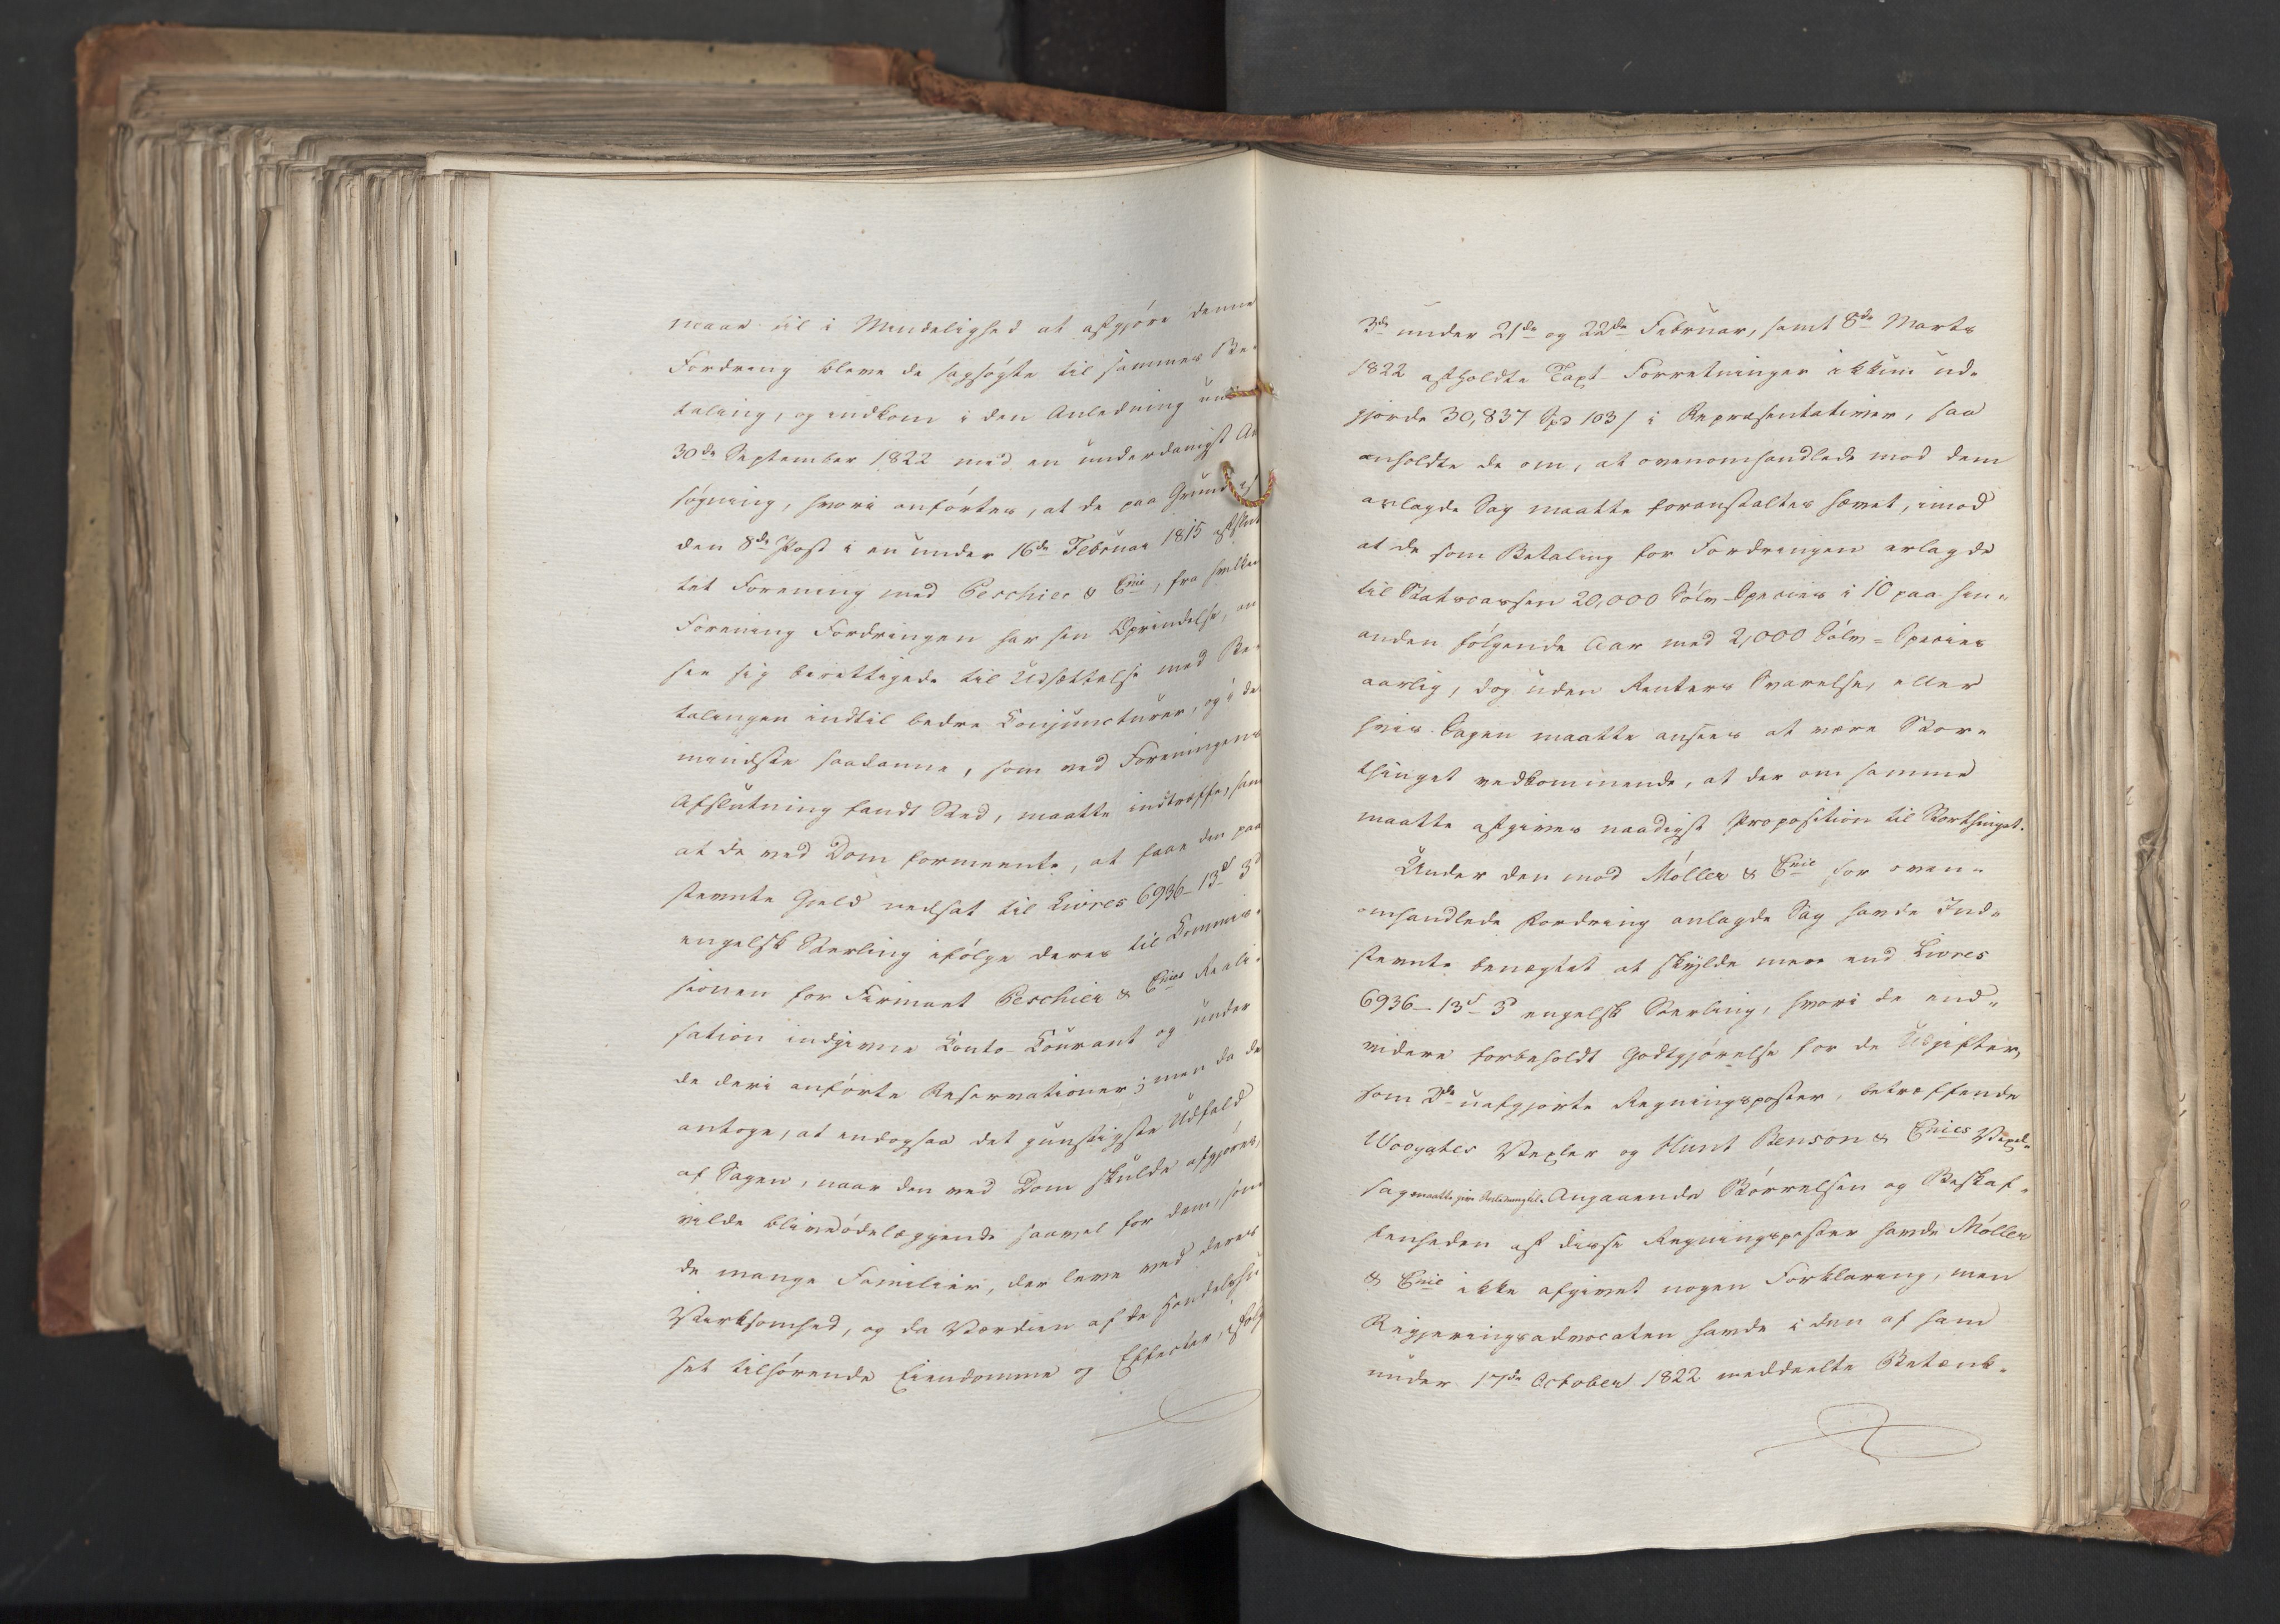 maae til i Mindelighed at afgjøre denne
Fordring bleve de sagsøgte til sammes Be-
taling, og indkom i den Anledning
30de September 1822 med en underdanigst An
søgning, hvori anførtes, at de paa Grund af
den 8de Post i en under 16de Februar 1815 afslut
tet Forening med Peschier & Cnie, fra hvilken
Forening Fordringen har sin Oprindelse, an
see sig berettigede til Udsættelse med Be-
talingen indtil bedre Conjuncturer, og i det
mindste saadanne, som ved Foreningens
Afslutning fandt Sted, maatte indtræffe, samt
at de ved Dom formeente, at faae den paa
stevnte Gjeld nedsat til Livres 6936 – 13s 3d
engelsk Sterling ifølge deres til Commis-
sionen for Firmaet Peschier & Cnies Reali-
sation indgivne Conto-Courant og under
de deri anførte Reservationer; men da de
antoge, at endogsaa det gunstigste Udfald
af Sagen, naar den ved Dom skulde afgjøres,
vilde blive ødelæggende saavel for dem, som
de mange Familier, der leve ved deres
Virksomhed, og da Værdien af de Handelshu
set tilhørende Eiendomme og Effecter, ifølge
3de under 21de og 22de Februar, samt 8de Marts
1822 afholdte Taxt-Forretninger ikkun ud-
gjorde 30,837 Spd 103 s i Repræsentativer, saa
anholdte de om, at ovenomhandlede mod dem
anlagde Sag maatte foranstaltes hævet, imod
at de som Betaling for Fordringen erlagde
til Statscassen 20,000 Sølv-Species i 10 paa hin-
anden følgende Aar med 2,000 Sølv-Species
aarlig, dog uden Renters Svarelse, eller
hvis Sagen maatte ansees at være Stor-
thinget vedkommende, at der om samme
maatte afgives naadigst Proposition til Storthinget.
Under den mod Møller & Cnie for oven-
omhandlede Fordring anlagde Sag havde Ind-
stevnte benægtet at skylde mere end Livres
6936 – 13s – 3d engelsk Sterling, hvori de end-
videre forbeholdt Godtgjørelse for de Udgifter,
som 2de uafgjorte Regningsposter, betreffende
Woogates Vexler og Hunt Benson & Cnies Vexel-
sag maatte give Anledning til. Angaaende Størrelsen og Beskaf-
fenheden af disse Regningsposter havde Møller
& Cnie ikke afgivet nogen Forklaring, men
Regjeringsadvocaten havde i den af ham
under 17de October 1822 meddeelte Betænk-